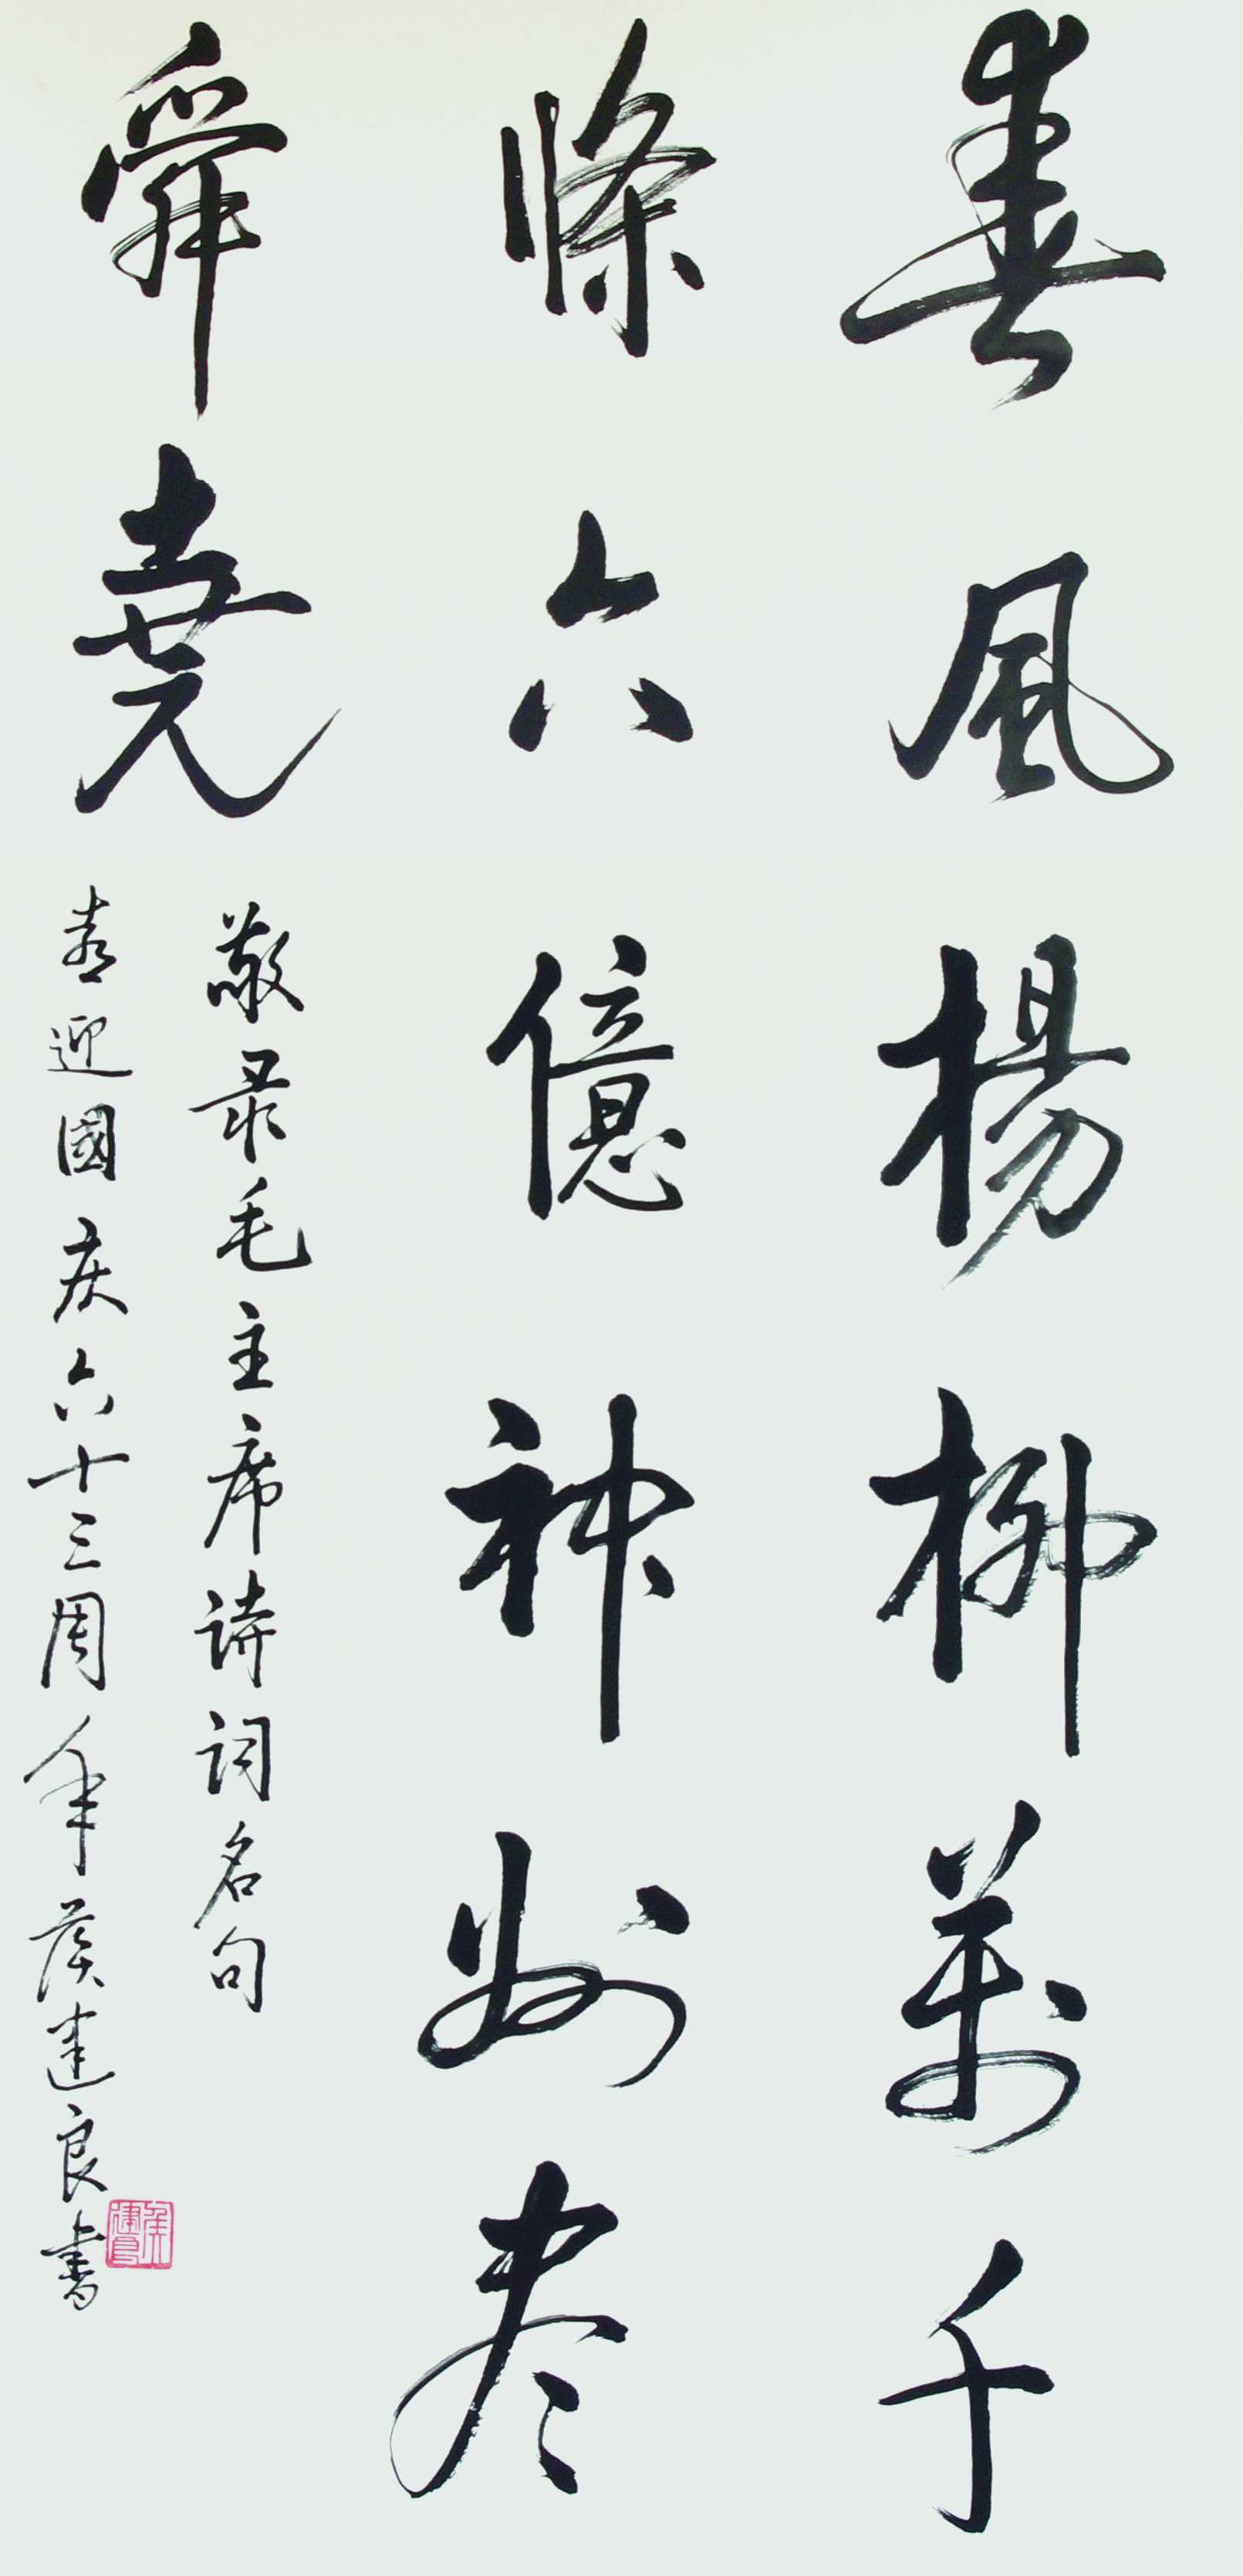 春風楊柳萬千
條六億神州尽
舜堯
敬录毛主席诗词名句
喜迎國庆六十三周年侯建良書
侯建良